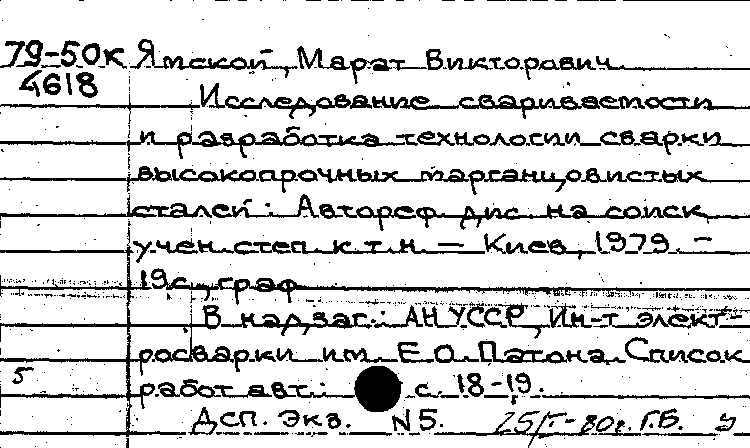 79-50к Ямской, Марат Викторович.
4618 Исследование свариваемости
и разработка технологии сварки
высокопрочных марганцовистых
сталей: Автореф. дис. на соиск.
учен. степ. к.т.н. — Киев, 1979. -
19с., граф.
В надзаг.: АН УССР, Ин-т элект-
росварки им. Е.О. Патона. Список
5 работ авт.: с. 18-19.
ДСП. Экз. N5. 25/I-80г. Г.Б.